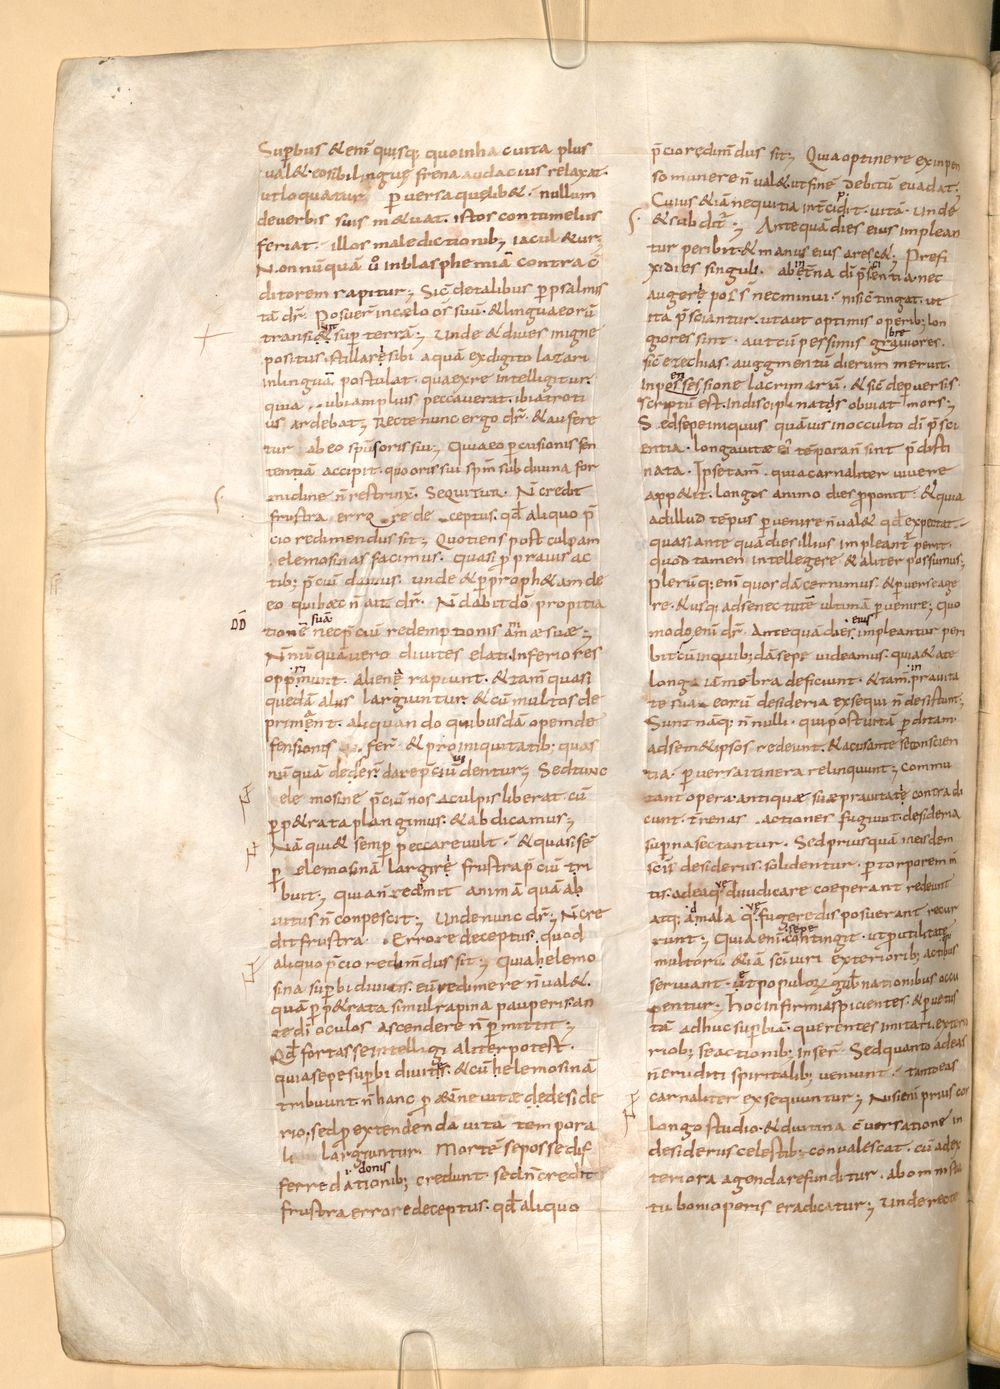 Sup̄bus & eni᷒ quisq; quoinhac uita plus
ual& · eosibilingue frena audacius relaxat·
utloquatur p̄uersa quęlib& · nullum
deuerbis suis m&uat· istos contumeliis
feriat· illos maledictionib; iacul&ur;
Nonnūquā ū inblasphemiā contra c̄
ditorem rapitur; Sic̄ detalibus p̄psalmis
tā dr̄· Posuer̄ incęlo os suū· & linguaeorū
transi& sup̄ terrā; Unde & diues inigne
positus· stillare sibi aquā exdigito lazari
inlinguā postulat· quaexre intelligitur·
quia ubiamplius peccauerat· ibiatroti
us ardebat; Recte nunc ergo dr̄· & aufere
tur abeo sp̄usoris sui; Quiaeo p̄cusionis sen
tentiā accipit· quo oris sui sp̄m sub diuina for
midine n̄ restrinx̄· Sequitur· N̄ credit
frustra errore deceptus· qd̄ aliquo p̄
cio redimendus sit; Quotiens post culpam
elemosinas facimus· quasi p̄ prauis ac
tib; p̄ciū damus· unde & p̄ proph&am de
eo quihaec n̄ ait dr̄· N̄ dabit dō propitia
DD tionē suā nec p̄ciū redemptionis animæ suæ;
N̄nūquā uero diuites elati inferiores
opprimunt· aliena rapiunt· & tam̄ quasi
quedā aliis largiuntur· & cū multos de
primant· aliquando quibusdā opem de
fensionis fer̄t· & pro iniquitatib; quas
nūquā deser̄t dare p̄ciū uidentur; Sed tunc
elemosine p̄ciū nos aculpis liberat· cū
p̄p&rata plangimus· & abdicamus;
Nā qui & semp̄ peccare uult· & quasi sē
p̄ elemosinā largire frustra p̄ciū tri
buit· quia n̄ redimit animā quā ab
uitiis n̄ conpescit; Unde nunc dr̄; N̄ cre
dit frustra · Errore deceptus· quod
aliquo p̄cio redimdus sit; Quia helemo
sina sup̄bi diuitis· eū redimere n̄ ual&·
quā p̄p&rata simul rapina pauperis· an
te dī oculos ascendere n̄ p̄mittit;
Qd̄ fortasse intelligi aliter potest·
quia sepe sup̄bi diuites· & cū helemosinā
tribuunt· n̄ hanc p̄ &erne uitæ deside
rio· sed p̄ extendenda uita tempora
li largiuntur· Mortē se posse dif
ferre donis credunt· sed n̄ credit
frustra errore deceptus· qd̄ aliquo
p̄cio redim̄dus sit; Quia optinere ex inpen
so munere n̄ ual& · ut sine debitū euadat·
Cuius &iā nequitia intercipit uitā· unde
& subditr̄; Antequā dies eius implean
tur peribit· & manus eius aresc&; Prefi
xi dies singuli· ab &erna dī p̄sentia· nec
augeri pos̄s nec minui· nisi c̄tingat· ut
ita p̄sciantur· ut aut optimis operib; lon
giores sint· aut cū pessimis breuiores·
sic̄ ezechias· augmentū dierum meruit·
inpossessione lacrimarū· & sic̄ de p̄uersis
scriptū est· Indisciplinatis obuiat mors;
Sed sepe iniquus quāuis inocculto dī p̄sci
entia· longa uitæ ei temporan̄ sint p̄desti
nata· Ipse tam̄· quia carnaliter uiuere
app&it· longos animo dies p̄ponit· & quia
ad illud tēpus p̄uenire n̄ ual& qd̄ expectat·
quasi ante quā dies illius impleantr̄ perit·
quod tamen intellegere & aliter possumus;
Plerūq; eni᷒ quosdā cernimus & p̄uerse age
re· & usq; ad senectutē ultimā p̄uenire; quo
modo eni᷒ dr̄· Antequā dies eius impleantur peri
bit· cū in quib; dā sepe uideamus· quia & ate
longa iā mēbra deficiunt· & tam̄ in prauita
te sua eorū desideria exsequi n̄ desistunt;
Sunt nāq; n̄nulli· qui post uitā p̄ditam·
ad sem&ipsos redeunt· & acusante se conscien
tia· p̄uersa itinera relinquunt; commu
tant opera· antiquæ suæ prauitate contradi
cunt· t̄renas actiones fugiunt· desideria
supna sectantur· Sed prius quā in eisdem
sc̄is desideriis solidentur· p̄ torporem m̄
tis· ad ea quę diiudicare coeperant redeunt
atq; ad mala quę fugere disposuerant recur
runt; Quia eni᷒ sepe contingit· ut p̄ utilitate
multorū &iā sc̄i uiri exteriorib; actibus
seruiant· ut populorū gubernationibus occu
pentur; hoc infirmi aspicientes· & p̄ uetus
tā adhuc sup̄biā· querentes imitari· exterio
riob; se actionib; inser̄· Sed quanto ad eas
n̄ eruditi spiritalib; ueniunt· tanto eas
carnaliter exsequuntur; Nisi eni᷒ prius cor
longo studio· & diutina c̄uersatione in
desideriis celestib; conualescat· cū ad ex
teriora agenda refunditur· ab omni sta
tu boni operis eradicatur; Unde recte